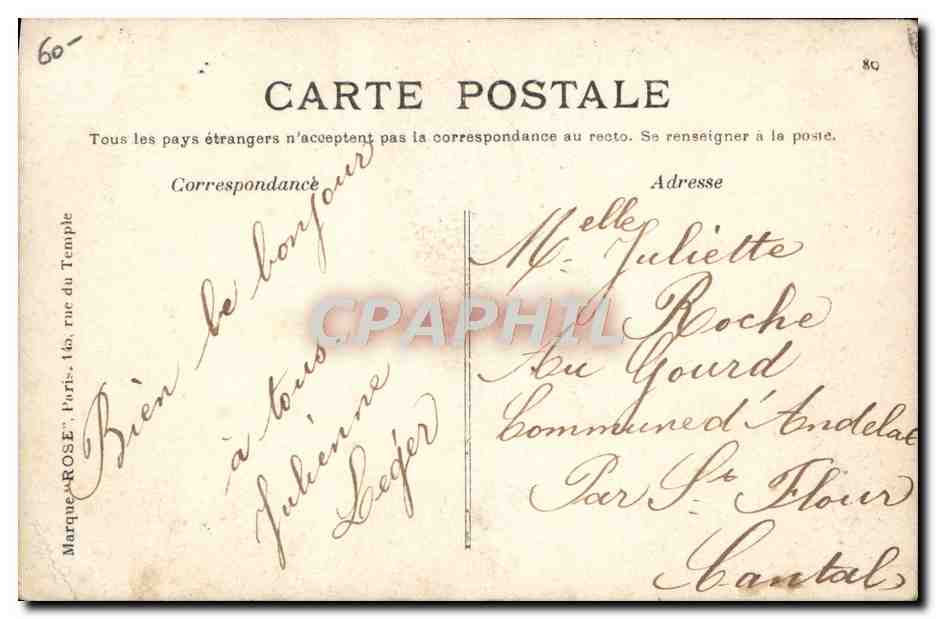 60-
80
CARTE POSTALE
Tous les pays étrangers n'acceptent pas la correspondance au recto. Se renseigner à la poste.
Correspondance
Adresse
Marque "ROSE", Paris. 145, rue du Temple
Bien le bonjour
à tous
Julienne
Leger
Melle Juliette
Roche
Au Gourd
Commune d'Andelat
Par St Flour
Cantal
CPAPHIL